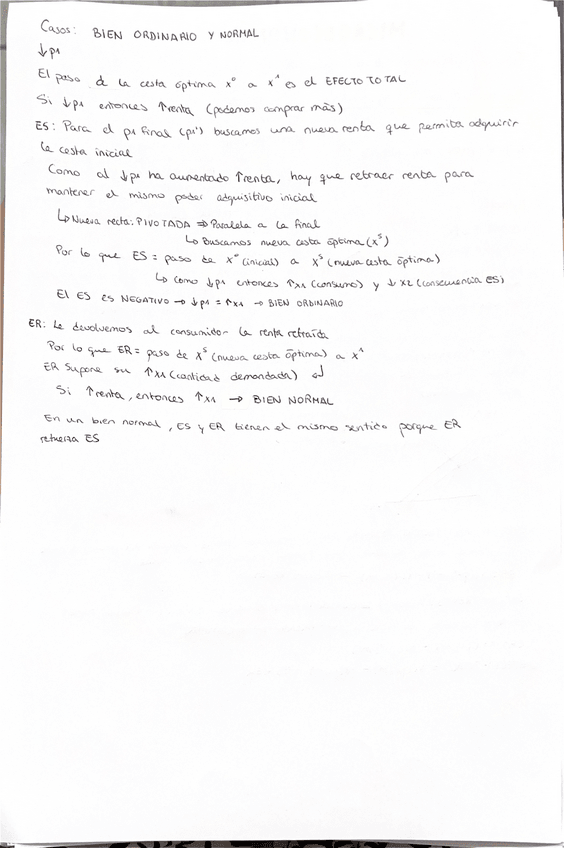 Casos: BIEN ORDINARIO Y NORMAL
↓p1
El paso de la cesta óptima x⁰ a x¹ es el EFECTO TOTAL
Si ↓p1 entonces ↑renta (podemos comprar más)
ES: Para el p1 final (p1') buscamos una nueva renta que permita adquirir
la cesta inicial
Como al ↓p1 ha aumentado ↑renta, hay que retraer renta para
mantener el mismo poder adquisitivo inicial
↳ Nueva recta: PIVOTADA ⇒ Paralela a la final
↳ Buscamos nueva cesta óptima (xˢ)
Por lo que ES = paso de x⁰ (inicial) a xˢ (nueva cesta óptima)
↳ Como ↓p1 entonces ↑x1 (consumo) y ↓x2 (consecuencia ES)
El ES es NEGATIVO → ↓p1 = ↑x1 → BIEN ORDINARIO
ER: Le devolvemos al consumidor la renta retraída
Por lo que ER = paso de xˢ (nueva cesta óptima) a x¹
ER supone su ↑x1 (cantidad demandada) ↲
Si ↑renta, entonces ↑x1 → BIEN NORMAL
En un bien normal, ES y ER tienen el mismo sentido porque ER
refuerza ES